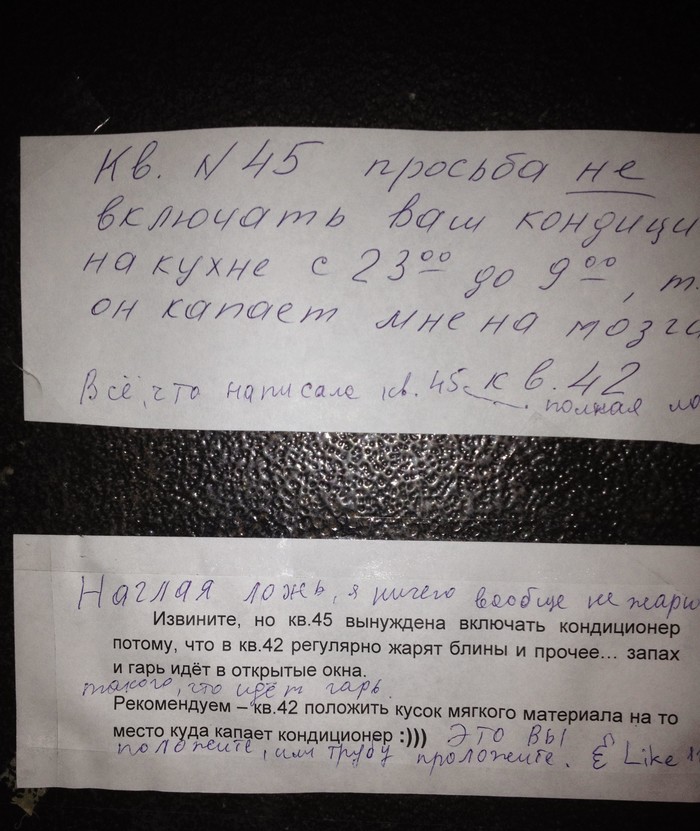 Кв. N 45 просьба не
включать ваш кондици
на кухне с 23⁰⁰ до 9⁰⁰, т.
он капает мне на мозги
кв. 42
Всё, что написала кв. 45 полная ло
Наглая ложь, я ничего вообще не жарю
Извините, но кв.45 вынуждена включать кондиционер
потому, что в кв.42 регулярно жарят блины и прочее... запах
и гарь идёт в открытые окна.
такого, что идёт гарь.
Рекомендуем – кв.42 положить кусок мягкого материала на то
место куда капает кондиционер :)))  ЭТО ВЫ
положите, или трубу проложите. Like